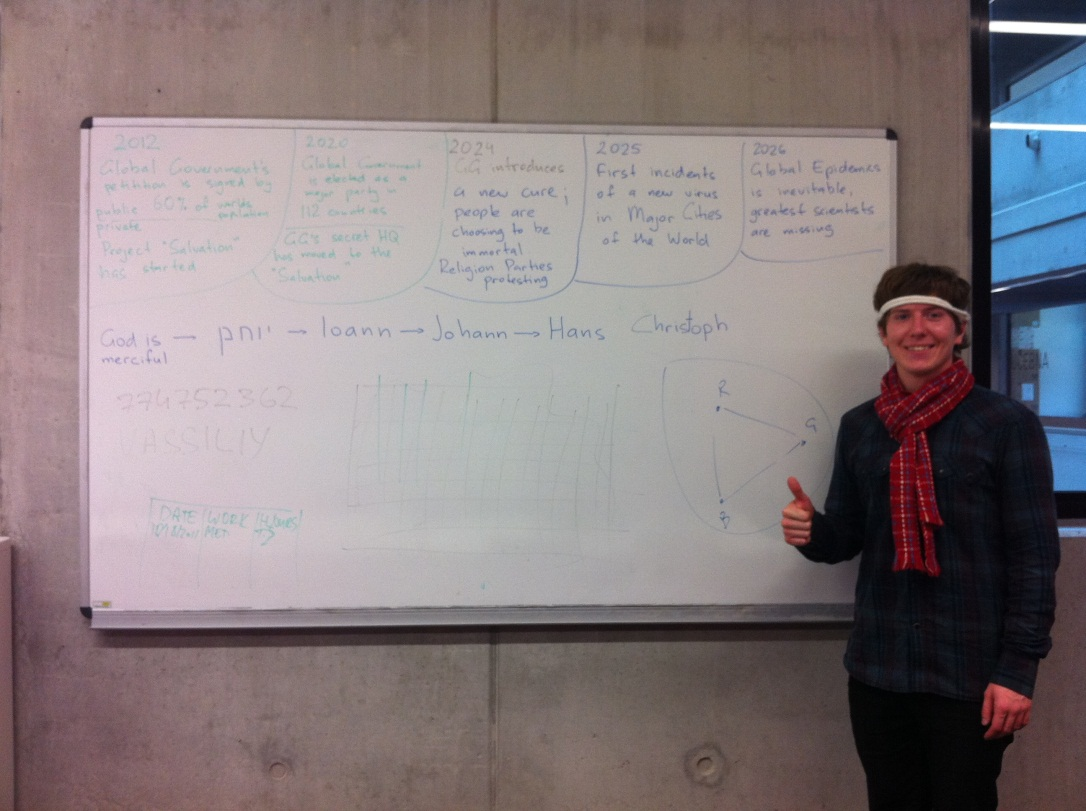 2012
Global Government's
petition is signed by
public 60% of world's
population
private
Project "Salvation"
has started
2020
Global Government
is elected as a
major party in
112 countries
GG's secret HQ
has moved to the
"Salvation"
2024
GG introduces
a new cure;
people are
choosing to be
immortal
Religion Parties
protesting
2025
First incidents
of a new virus
in Major Cities
of the World
2026
Global Epidemics
is inevitable,
greatest scientists
are missing
God is
merciful — → Ioann → Johann → Hans Christoph
774752362
ASSILIY
R
G
B
DATE WORK HOURS